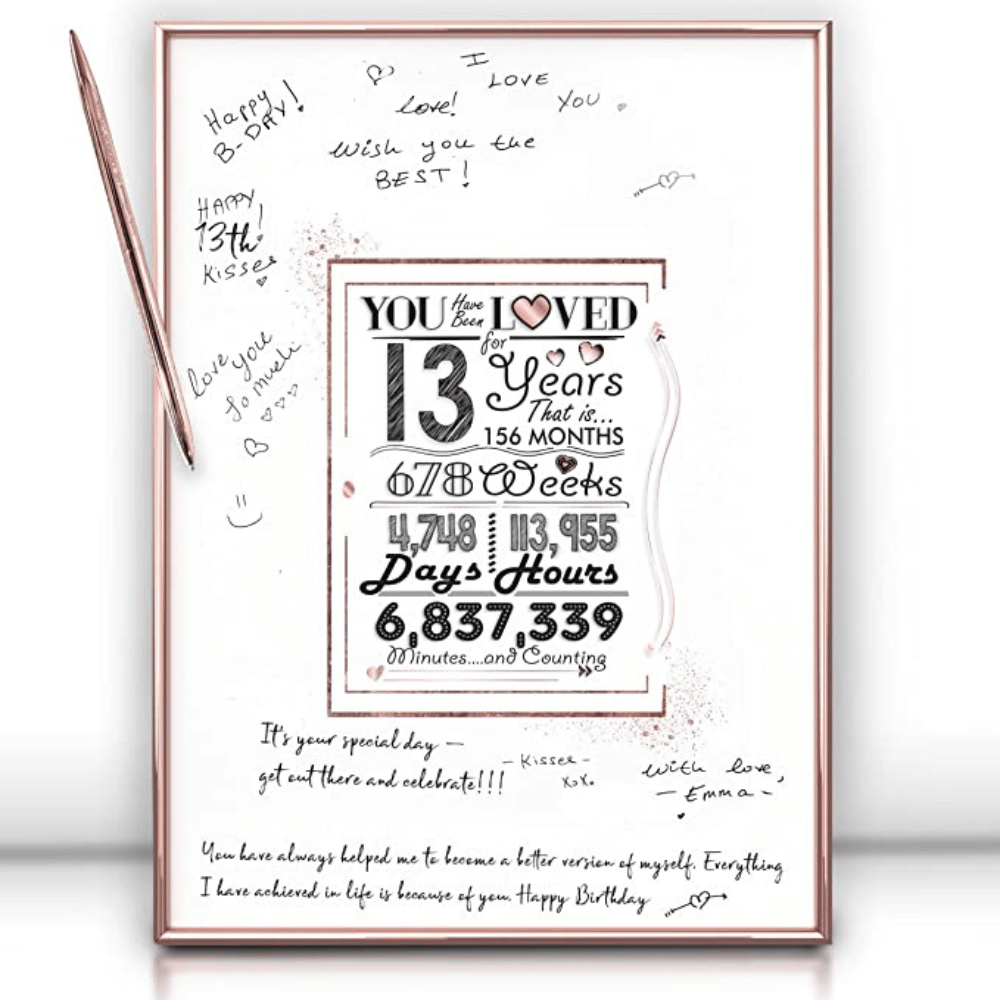 I
LOVE
YOU
Happy
B-DAY!
love!
Wish you the
BEST!
HAPPY!
13th
Kisses
love you
so much
YOU Have Been LOVED
for
13 Years
That is...
156 MONTHS
678 Weeks
4,748 113,955
Days Hours
6,837,339
Minutes....and Counting
It's your special day –
get out there and celebrate!!!
- Kisses -
xoxo
with love,
- Emma -
You have always helped me to become a better version of myself. Everything
I have achieved in life is because of you. Happy Birthday